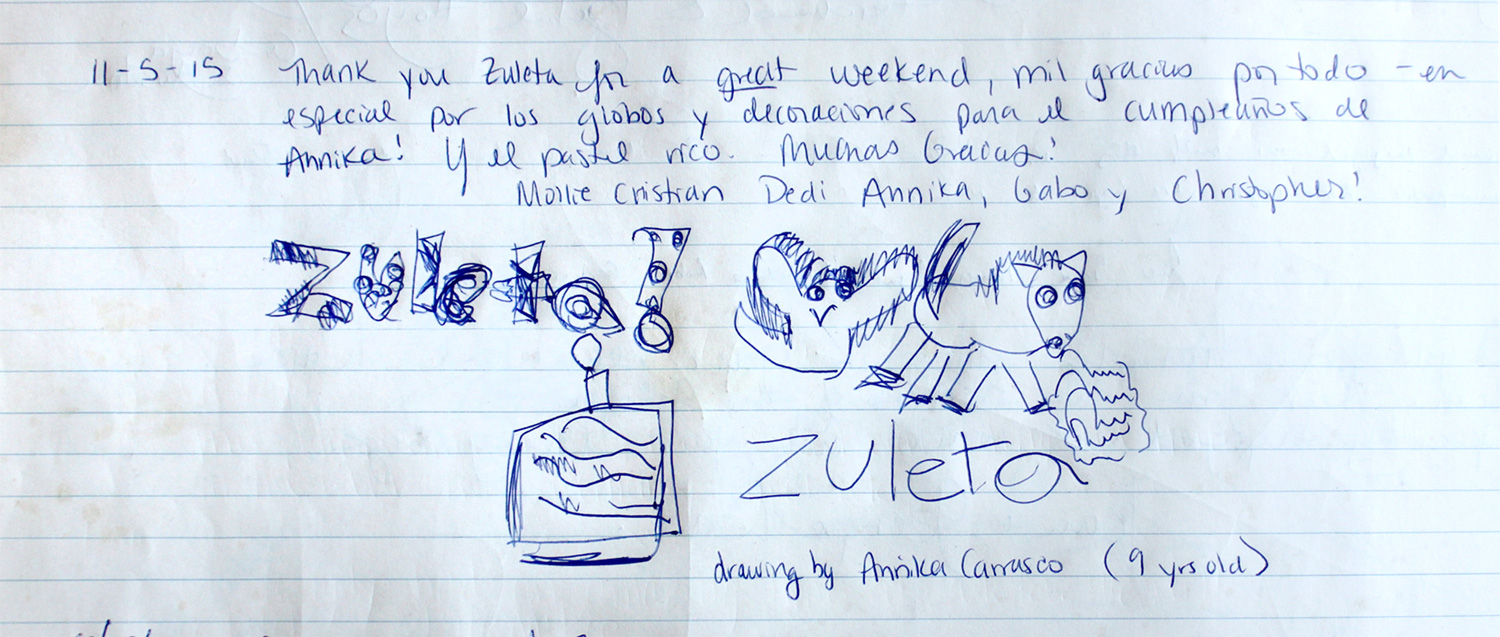 11-5-15 Thank you Zuleta for a great weekend, mil gracias por todo - en
especial por los globos y decoraciones para el cumpleaños de
Annika! Y el pastel rico. Muchas Gracias!
Mollie Cristian Dedi Annika, Gabo y Christopher!
Zuleta!
Zuleta
drawing by Annika Carrasco (9 yrs old)